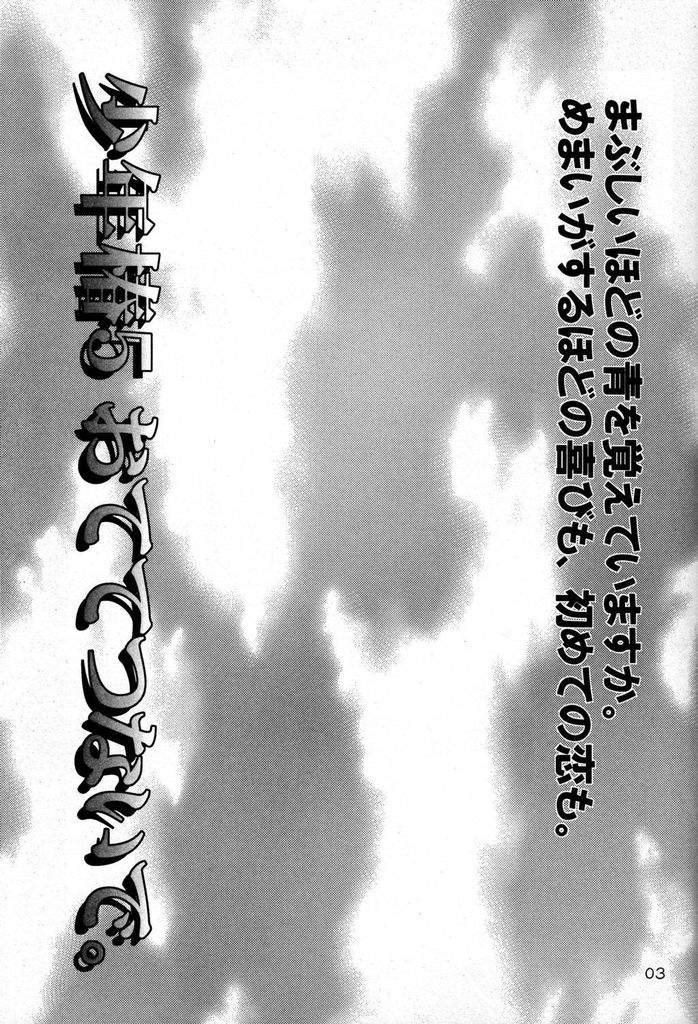 まぶしいほどの青を覚えていますか。
めまいがするほどの喜びも、初めての恋も。
おててつないで。
03